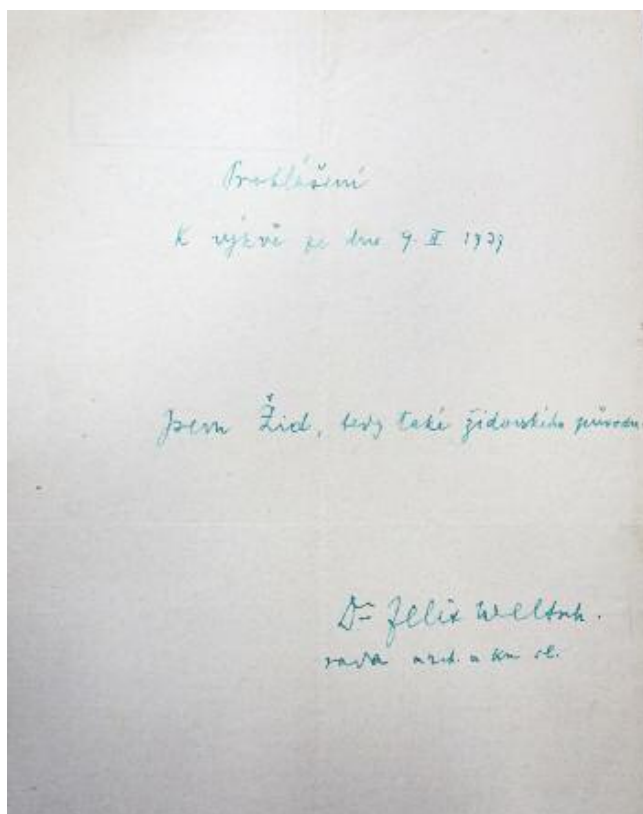 Prohlášení
K výzvě ze dne 9. II 1939
Jsem Žid, tedy také židovského původu
Dr Felix Weltsch.
rada